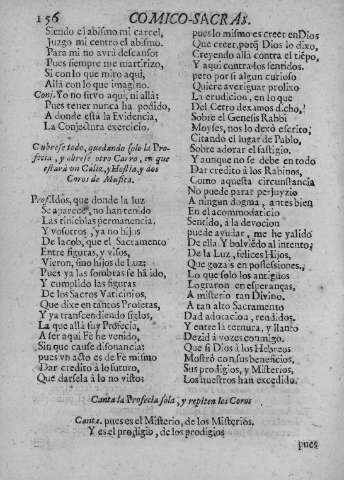 156 COMICO-SACRAS.
Siendo el abismo mi carcel,
Juzgo mi centro el abismo.
Para mi no avrà descanso:
Pues siempre me martirizo,
Si con lo que miro aqui,
Allà con lo que imagino.
Conj. Yo no sirvo aqui, ni allà:
Pues tener nunca ha podido,
A donde està la Evidencia,
La Conjectura exercicio.
Cubrese todo, quedando sola la Pro-
fecia, y abrese otro Carro, en que
estarà un Caliz, y Hostia, y dos
Coros de Musica.
Prof. Idos, que donde la luz
Se aparece, no han tenido
Las tinieblas permanencia.
Y vosotros, ya no hijos
De Iacob, que el Sacramento
Entre figuras, y visos,
Vieron, sino hijos de Luz:
Pues ya las sombras se há ido,
Y cumplido las figuras
De los Sacros Vaticinios,
Que dixe en tantos Profetas,
Y ya transcendiendo siglos,
La que allà fuy Profecia,
A ser aqui Fè he venido,
Sin que cause disonancia:
pues vn acto es de Fè mismo
Dar credito à lo futuro,
Que darsela à lo no visto:
pues lo mismo es creer en Dios
Que creer, porq̃ Dios lo dixo,
Creyendo allà contra el tiẽpo,
Y aqui contra los sentidos.
pero por si algun curioso
Quiere averiguar prolixo
La erudicion, en lo que
Del Cetro dexamos dicho,
Sobre el Genesis Rabbi
Moyses, nos lo dexò escrito,
Citando el lugar de Pablo,
Sobre adorar el fastigio.
Y aunque no se debe en todo
Dar credito à los Rabinos,
Como aquesta circunstancia
No puede parar perjuyzio
A ningun dogma, antes bien
En el acommodaticio
Sentido, à la devocion
puede ayudar, me he valido
De ella. Y bolviẽdo al intento,
De la Luz, felices Hijos,
Que gozais en possessiones,
Lo que solo los antiguos
Lograron en esperanças,
A misterio tan Divino.
A tan alto Sacramento
Dad adoracion, rendidos.
Y entre la ternura, y llanto
Dezid à vozes conmigo.
Que si Dios à los Hebreos
Mostrò con sus beneficios,
Sus prodigios, y Misterios,
Los nuestros han excedido.
Canta la Profecia sola, y repiten los Coros
Canta. pues es el Misterio, de los Misterios.
Y es el prodigio, de los prodigios
pues